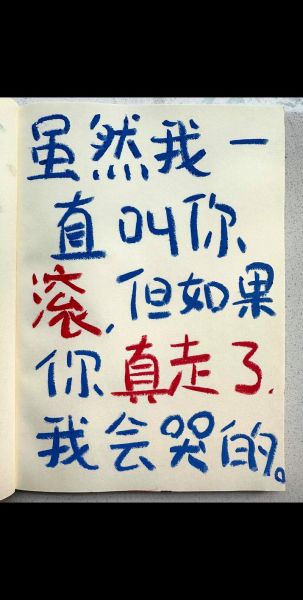 虽然我一
直叫你、
滚，但如果
你真走了.
我会哭的。